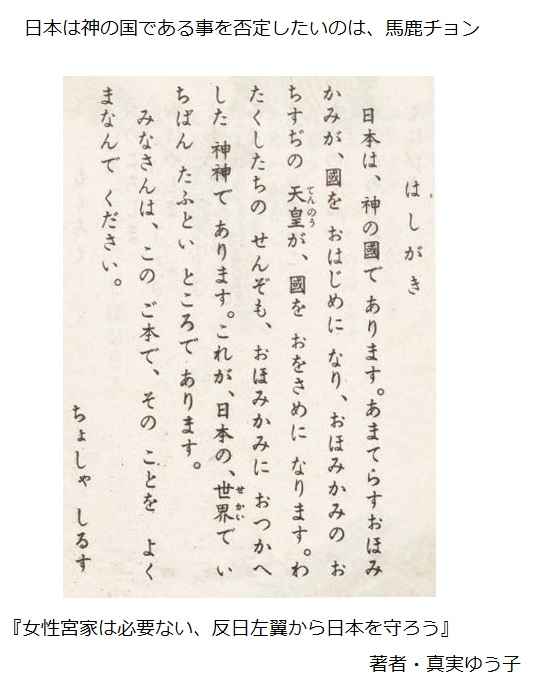 日本は神の国である事を否定したいのは、馬鹿チョン
はしがき
日本は、神の國で あります。あまてらすおほみ
かみが、國を おはじめに なり、おほみかみの お
てんのう
ちすぢの 天皇が、國を おをさめに なります。わ
たくしたちの せんぞも、おほみかみに おつかへ
せかい
した 神神で あります。これが、日本の、世界で い
ちばん たふとい ところで あります。
みなさんは、この ご本で、その ことを よく
まなんで ください。
ちょしゃ しるす
『女性宮家は必要ない、反日左翼から日本を守ろう』
著者・真実ゆう子